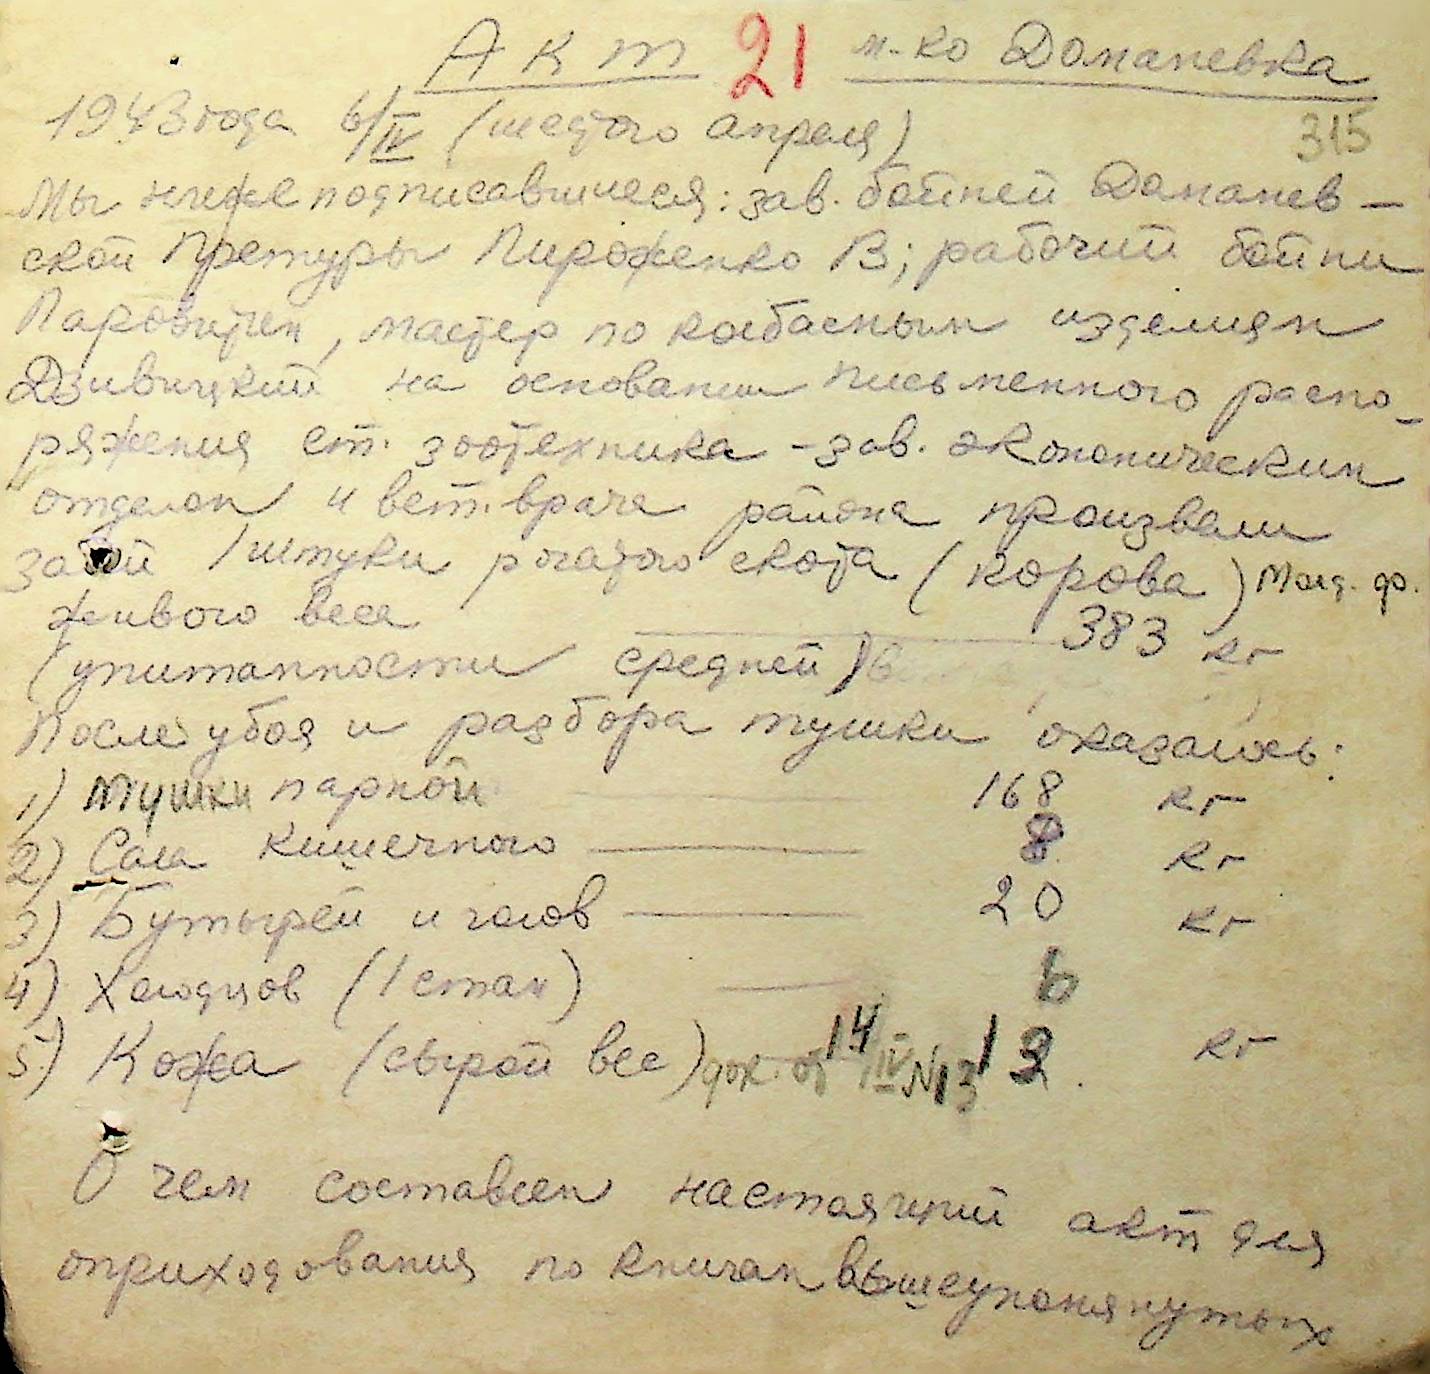 Акт 21 м-ко Доманевка
1943 года 6/IV (шестого апреля)
315
Мы нижеподписавшиеся: зав. бойней Доманев-
ской Претуры Пироженко В; рабочий бойни
мастер по колбасным изделиям
Дзивицкий на основании письменного распо-
ряжения ст. зоотехника - зав. экономическим
отделом и вет. врача района произвели
забой 1 штуки рогатого скота (корова)
живого веса 383 кг
(упитанности средней)
После убоя и разбора тушки оказалось:
1) Тушки парной 168 кг
2) Сала кишечного 8 кг
3) Бутырей и голов 20 кг
4) Холодцов (1 стан) 6
5) Кожа (сырой вес) док. от 14/IV N13 12. кг
О чем составлен настоящий акт для
оприходования по книгам вышеупомянутых